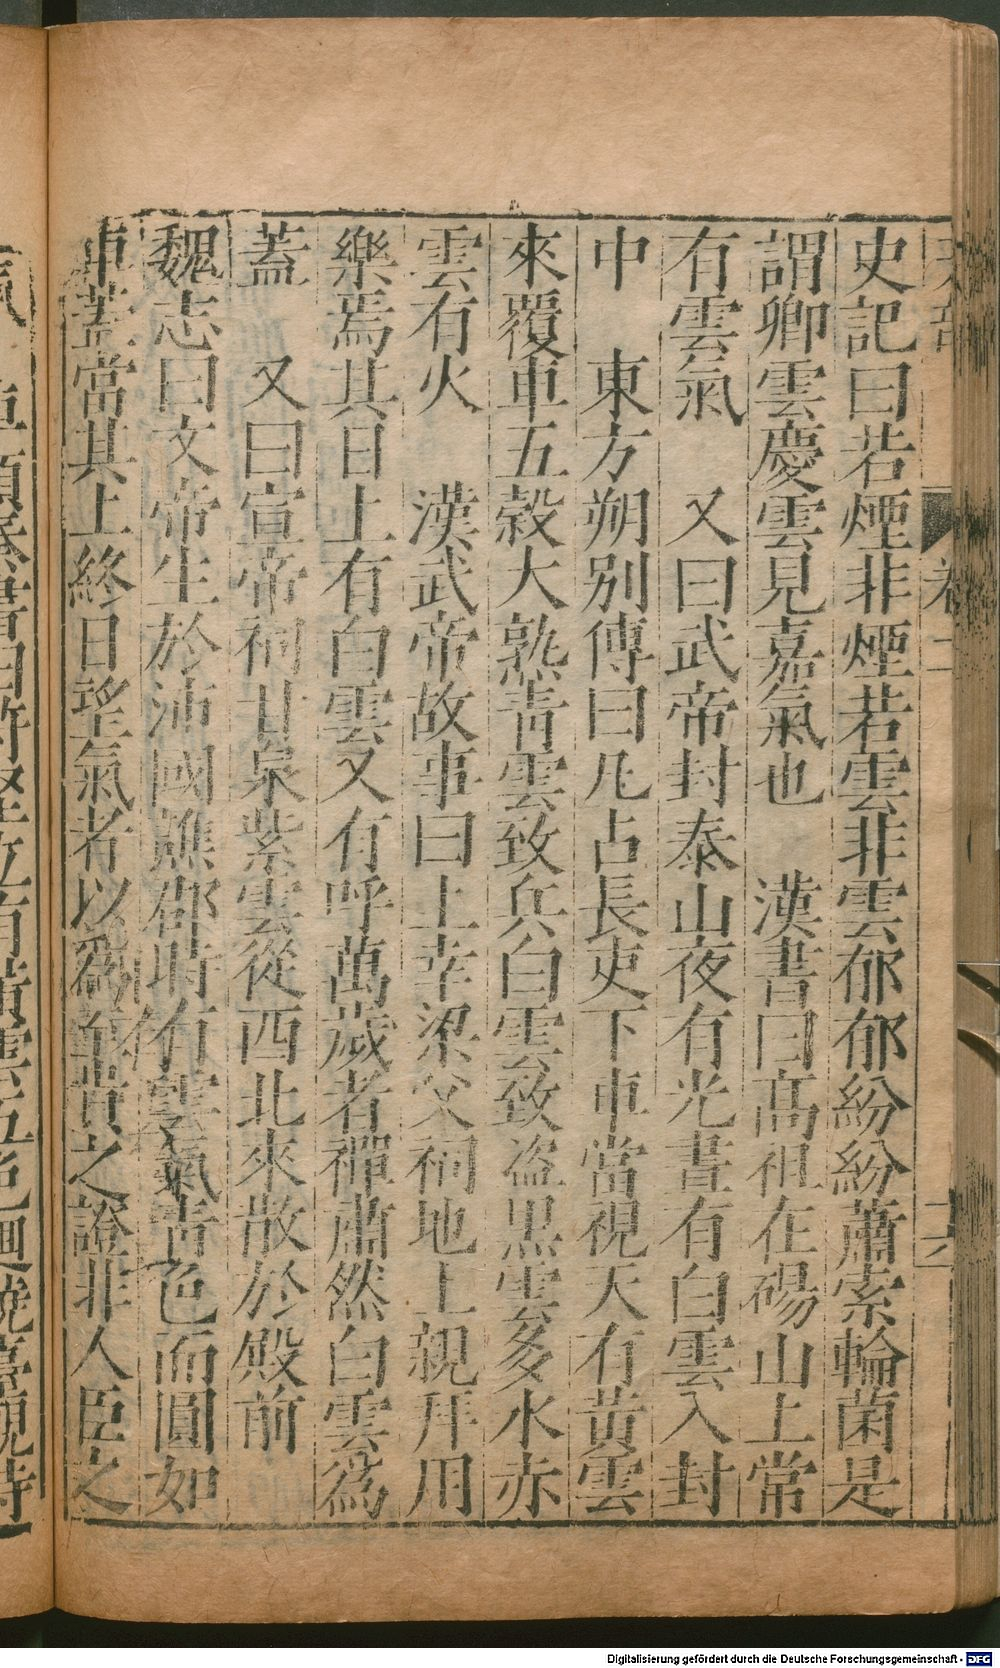 史記曰若煙非煙若雲非雲郁郁紛紛蕭索輪菌是
謂卿雲慶雲見嘉氣也　漢書曰高祖在碭山上常
有雲氣　又曰武帝封泰山夜有光晝有白雲入封
中　東方朔別傳曰凡占長吏下車當視天有黃雲
來覆車五穀大熟青雲致兵白雲致盜黑雲多水赤
雲有火　漢武帝故事曰上幸梁父祠地上親拜用
樂焉其日上有白雲又有呼萬歲者禪肅然白雲為
蓋　又曰宣帝祠甘泉紫雲從西北來散於殿前
魏志曰文帝生於沛國譙郡時有雲氣青色而圓如
車蓋當其上終日望氣者以為至貴之證非人臣之
Digitalisierung gefördert durch die Deutsche Forschungsgemeinschaft - DFG